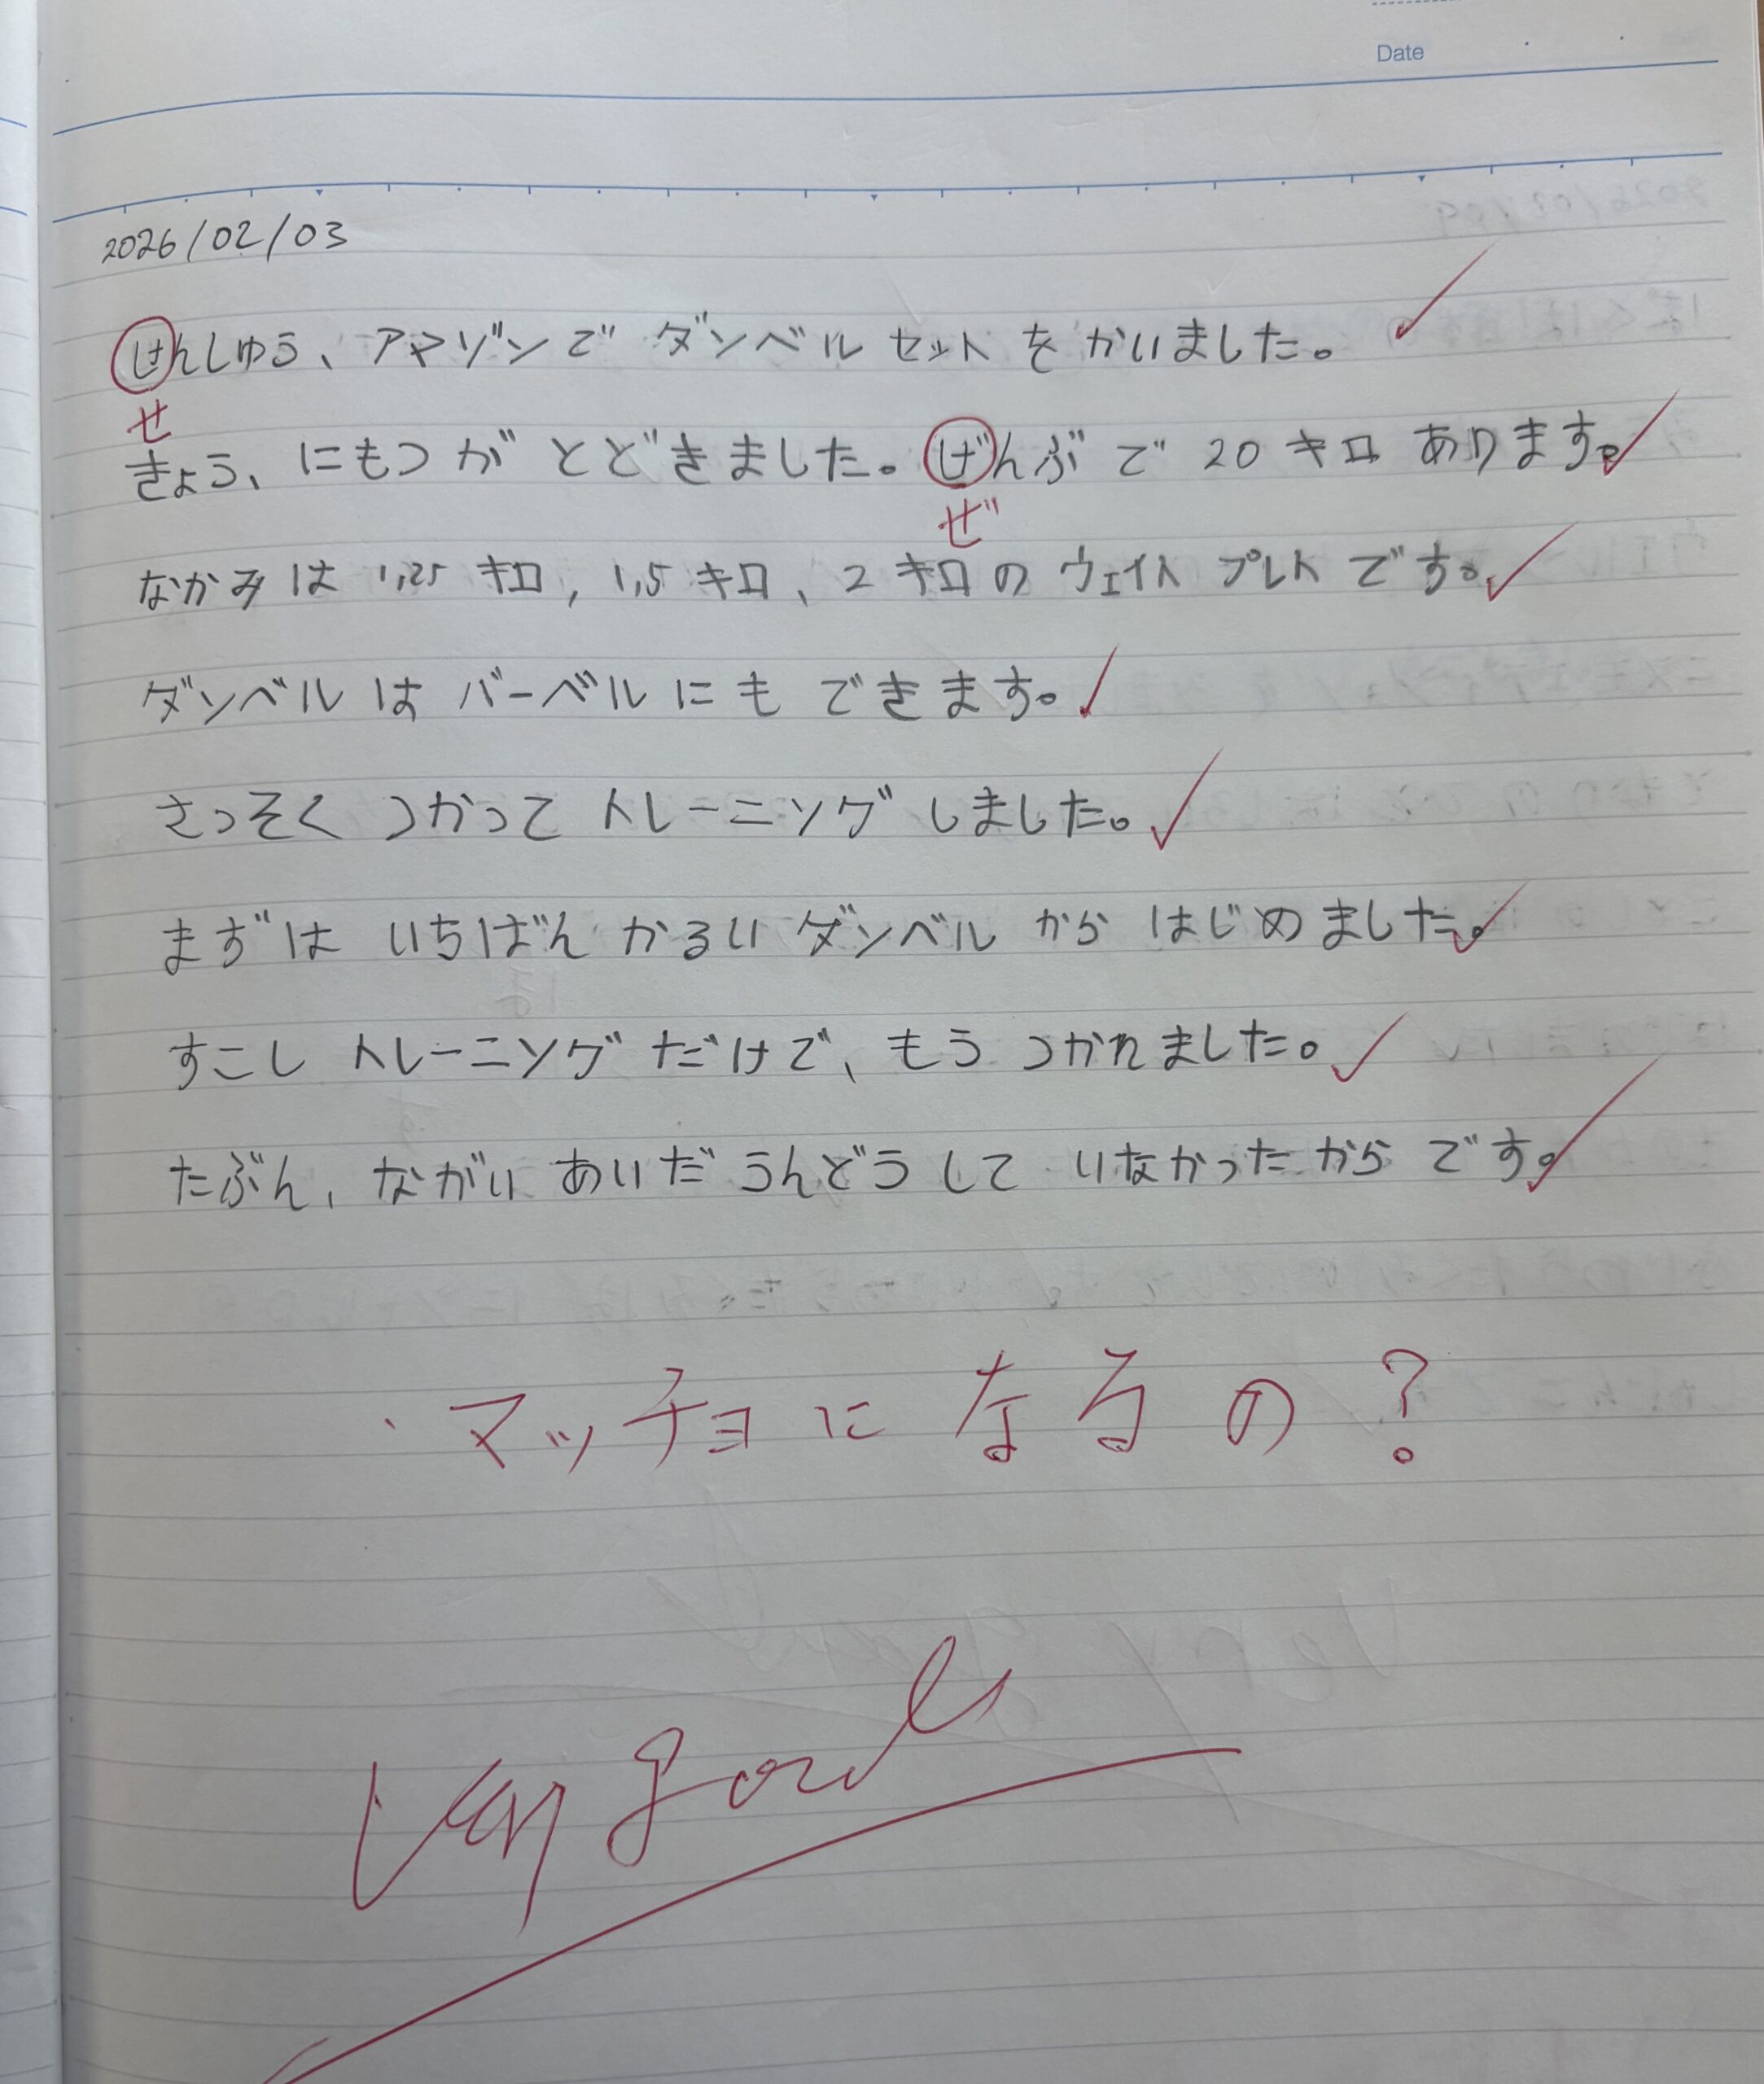 Date
2026/02/03
けんしゅう、アマゾンで ダンベル セット を かいました。
せ
きょう、にもつ が とどきました。げんぶ で 20 キロ あります。
ぜ
なかみ は 1,25 キロ, 1,5 キロ、2 キロ の ウェイト プレト です。
ダンベル は バーベル にも できます。
さっそく つかって トレーニング しました。
まず は いちばん かるい ダンベル から はじめました。
すこし トレーニング だけで、もう つかれました。
たぶん、ながい あいだ うんどう して いなかった から です。
マッチョ に なる の ?
Very good